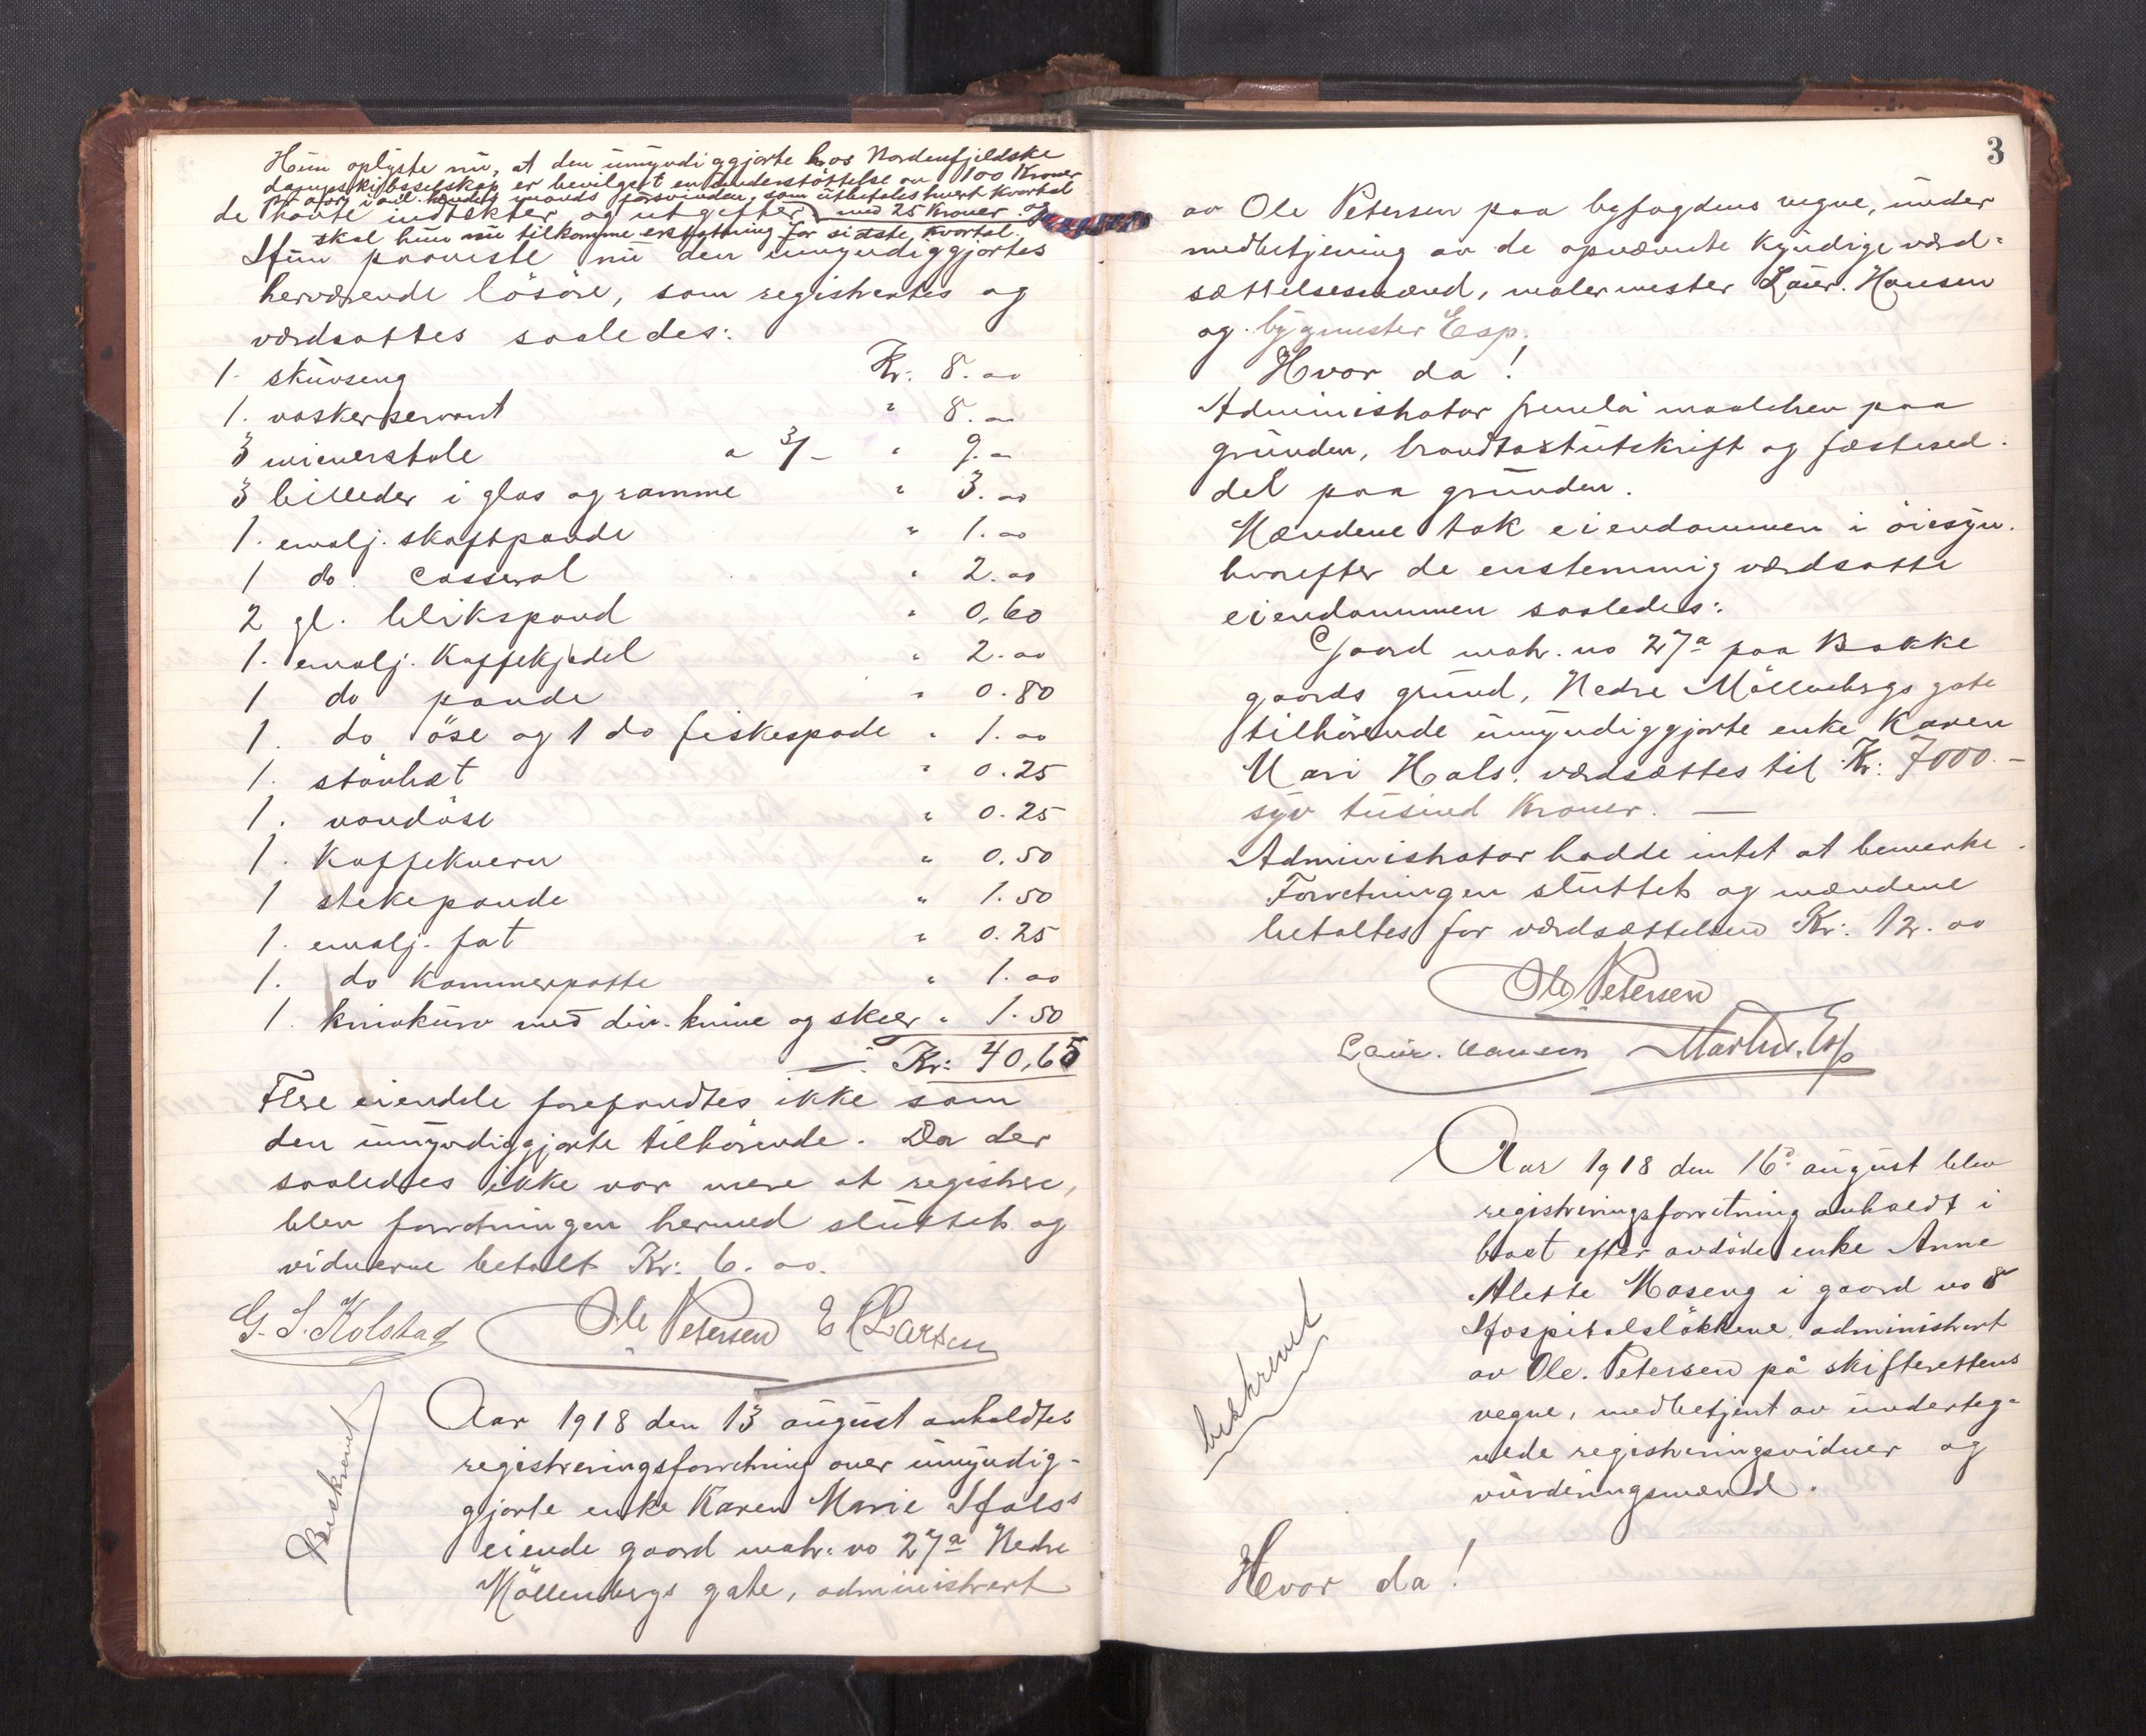 Hun oplyste nu, at den umyndiggjorte hos Nordenfjeldske
dampskibsselskap er bevilget en understöttelse av 100 Kroner
pr aar i anl. hendes mands forsvinden, som utbetales hvert kvartal
de havte indtækter og utgifter med 25 Kroner og
skal hun nu tilkomme erstatning for sidste kvartal.
Hun paaviste nu den umyndiggjortes
herværende lösöre, som registrertes og
værdsattes saaledes:
1. skuvseng Kr: 8.00
1. vaskerservant " 8.00
3 wienerstole a 3/- " 9.00
3 billeder i glas og ramme " 3.00
1. emalj. skaftpande " 1.00
1 do. Casserol " 2.00
2 gl. blikspand " 0,60
1. emalj. Kaffekjedel " 2.00
1 do pande " 0.80
1. do öse og 1 do fiskespade " 1.00
1. stövbræt " 0.25
1. vandöse " 0.25
1. Kaffekvern " 0.50
1 stekepande " 1.50
1. emalj. fat " 0.25
1. do Kammerpotte " 1.00
1. knivkurv med div. knive og skeer " 1.50
Kr: 40,65
Flere eiendele forefandtes ikke som
den umyndiggjorte tilhörende. Da der
saaledes ikke var mere at registrere,
blev forretningen hermed sluttet og
vidnerne betalt Kr: 6.00.
G. S. Kolstad Ole Petersen E Larsen
Beskrevet
Aar 1918 den 13 august anholdtes
registreringsforretning over umyndig-
gjorte enke Karen Marie Hals's
eiende gaard matr. no 27a Nedre
Möllenbergs gate, administrert
3
av Ole Petersen paa byfogdens vegne, under
medbetjening av de opnævnte kyndige værd=
sættelsesmænd, malermester Laur. Hansen
og bygmester Esp.
Hvor da!
Administrator fremla maalebrev paa
grunden, brandtaxtutskrift og fæstesed-
del paa grunden.
Mændene tok eiendommen i öiesyn.
hvorefter de enstemmig værdsatte
eiendommen saaledes:
Gaard matr. no 27a paa Bakke
gaards grund, Nedre Möllenbergs gate
tilhörende umyndiggjorte enke Karen
Mari Hals. værdsættes til Kr: 7000.-
syv tusind Kroner. —
Administrator hadde intet at bemerke.
Forretningen sluttet og mændene
betaltes for værdsættelsen Kr: 12.00
Ole Petersen
Laur. Hansen Martin. Esp
Aar 1918 den 16de august blev
registreringsforretning anholdt i
boet efter avdöde enke Anne
Alette Moseng i gaard no 8
Hospitalslökkene, administrert
av Ole. Petersen på skifterettens
vegne, medbetjent av underteg=
nede registreringsvidner og
vurderingsmænd.
beskrevet
Hvor da!